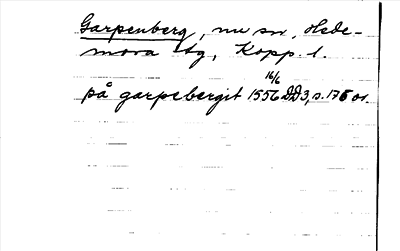 Garpenberg, nu sn, Hede-
mora tg, Kopp. l.
16/6
på garpebergit 1556 DD3, s. 175 or.